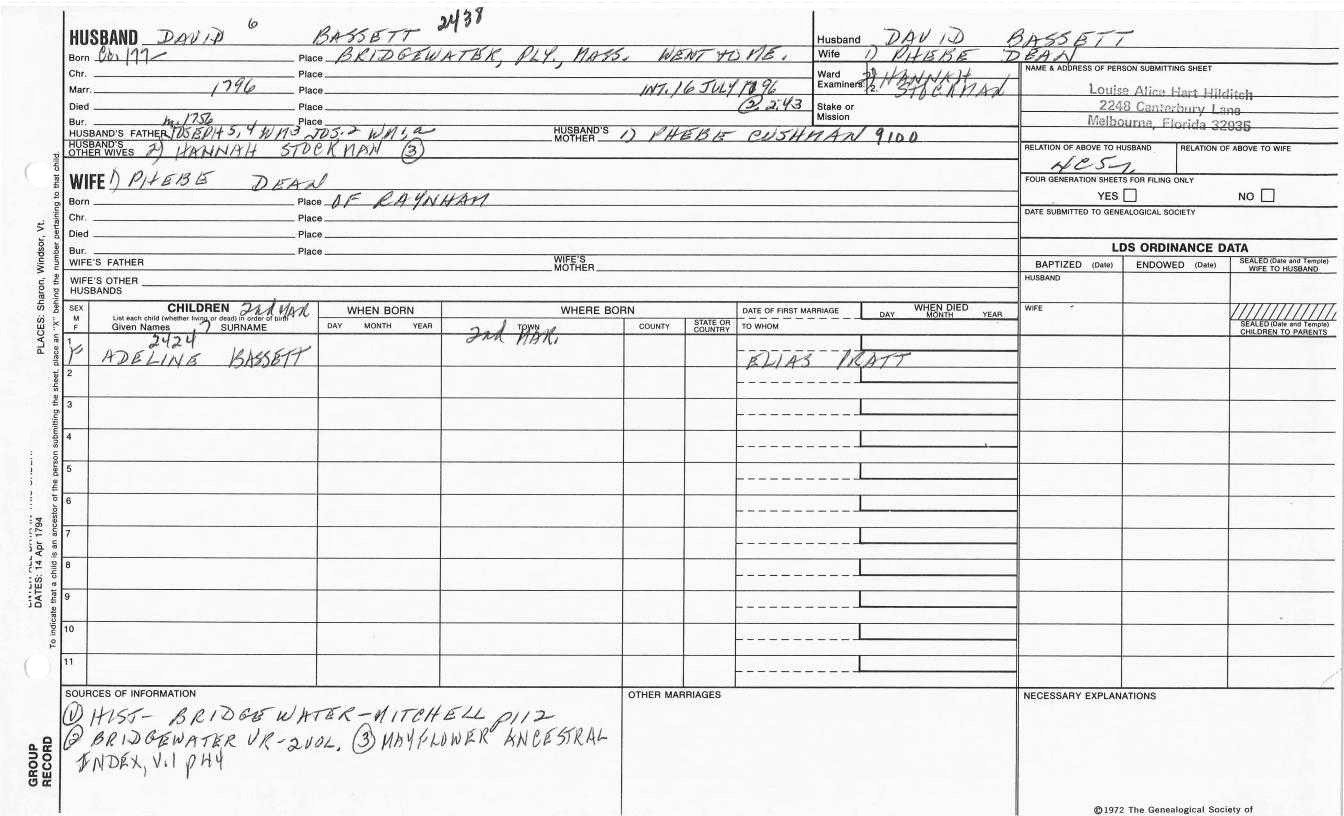 HUSBAND DAVID 6 BASSETT 2438
Born Place BRIDGEWATER, PLY., MASS. WENT TO ME.
Chr. Place
Marr. 1796 Place INT. 16 JULY 1796
Died Place (2) 2:43
Bur. Place
m. 1756
HUSBAND'S FATHER JOSEPH 5, 4 WM3 JOS.2 WM1,a HUSBAND'S MOTHER 1) PHEBE CUSHMAN 9100
HUSBAND'S OTHER WIVES 2) HANNAH STOCKMAN (3)
WIFE 1) PHEBE DEAN
Born Place OF RAYNHAM
Chr. Place
Died Place
Bur. Place
WIFE'S FATHER WIFE'S MOTHER
WIFE'S OTHER HUSBANDS
Husband DAVID BASSETT
Wife 1) PHEBE DEAN
Ward 2) HANNAH
Examiners: 1. 2. STOCKMAN
Stake or Mission
NAME & ADDRESS OF PERSON SUBMITTING SHEET
Louise Alice Hart Hilditch
2248 Canterbury Lane
Melbourne, Florida 32935
RELATION OF ABOVE TO HUSBAND RELATION OF ABOVE TO WIFE
FOUR GENERATION SHEETS FOR FILING ONLY
YES NO
DATE SUBMITTED TO GENEALOGICAL SOCIETY
LDS ORDINANCE DATA
BAPTIZED (Date) ENDOWED (Date) SEALED (Date and Temple) WIFE TO HUSBAND
HUSBAND
WIFE
SEALED (Date and Temple) CHILDREN TO PARENTS
SEX M F
CHILDREN 2nd MAR
List each child (whether living or dead) in order of birth
Given Names 7 SURNAME
WHEN BORN
DAY MONTH YEAR
WHERE BORN
TOWN COUNTY STATE OR COUNTRY
2nd MAR.
DATE OF FIRST MARRIAGE
TO WHOM
WHEN DIED
DAY MONTH YEAR
1 F 2424
ADELINE BASSETT ELIAS PRATT
2
3
4
5
6
7
8
9
10
11
SOURCES OF INFORMATION
(1) HIST- BRIDGEWATER-MITCHELL p112
(2) BRIDGEWATER VR-2VOL. (3) MAYFLOWER ANCESTRAL
INDEX, V.1 p44
OTHER MARRIAGES
NECESSARY EXPLANATIONS
©1972 The Genealogical Society of
PLACES: Sharon, Windsor, Vt.
DATES: 14 Apr 1794
To indicate that a child is an ancestor of the person submitting the sheet, place an "X" behind the number pertaining to that child.
GROUP
RECORD